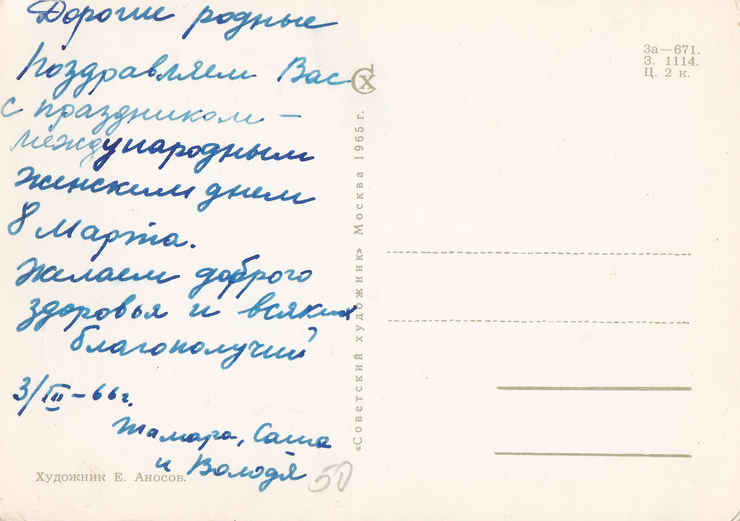 Дорогие родные
Поздравляем Вас
с праздником –
международным
женским днем
8 Марта.
Желаем доброго
здоровья и всяких
благополучий
3/III – 66 г.
Тамара, Саша
и Володя
50
Художник Е. Аносов.
«Советский художник» Москва 1965 г.
СХ
За—671.
З. 1114.
Ц. 2 к.